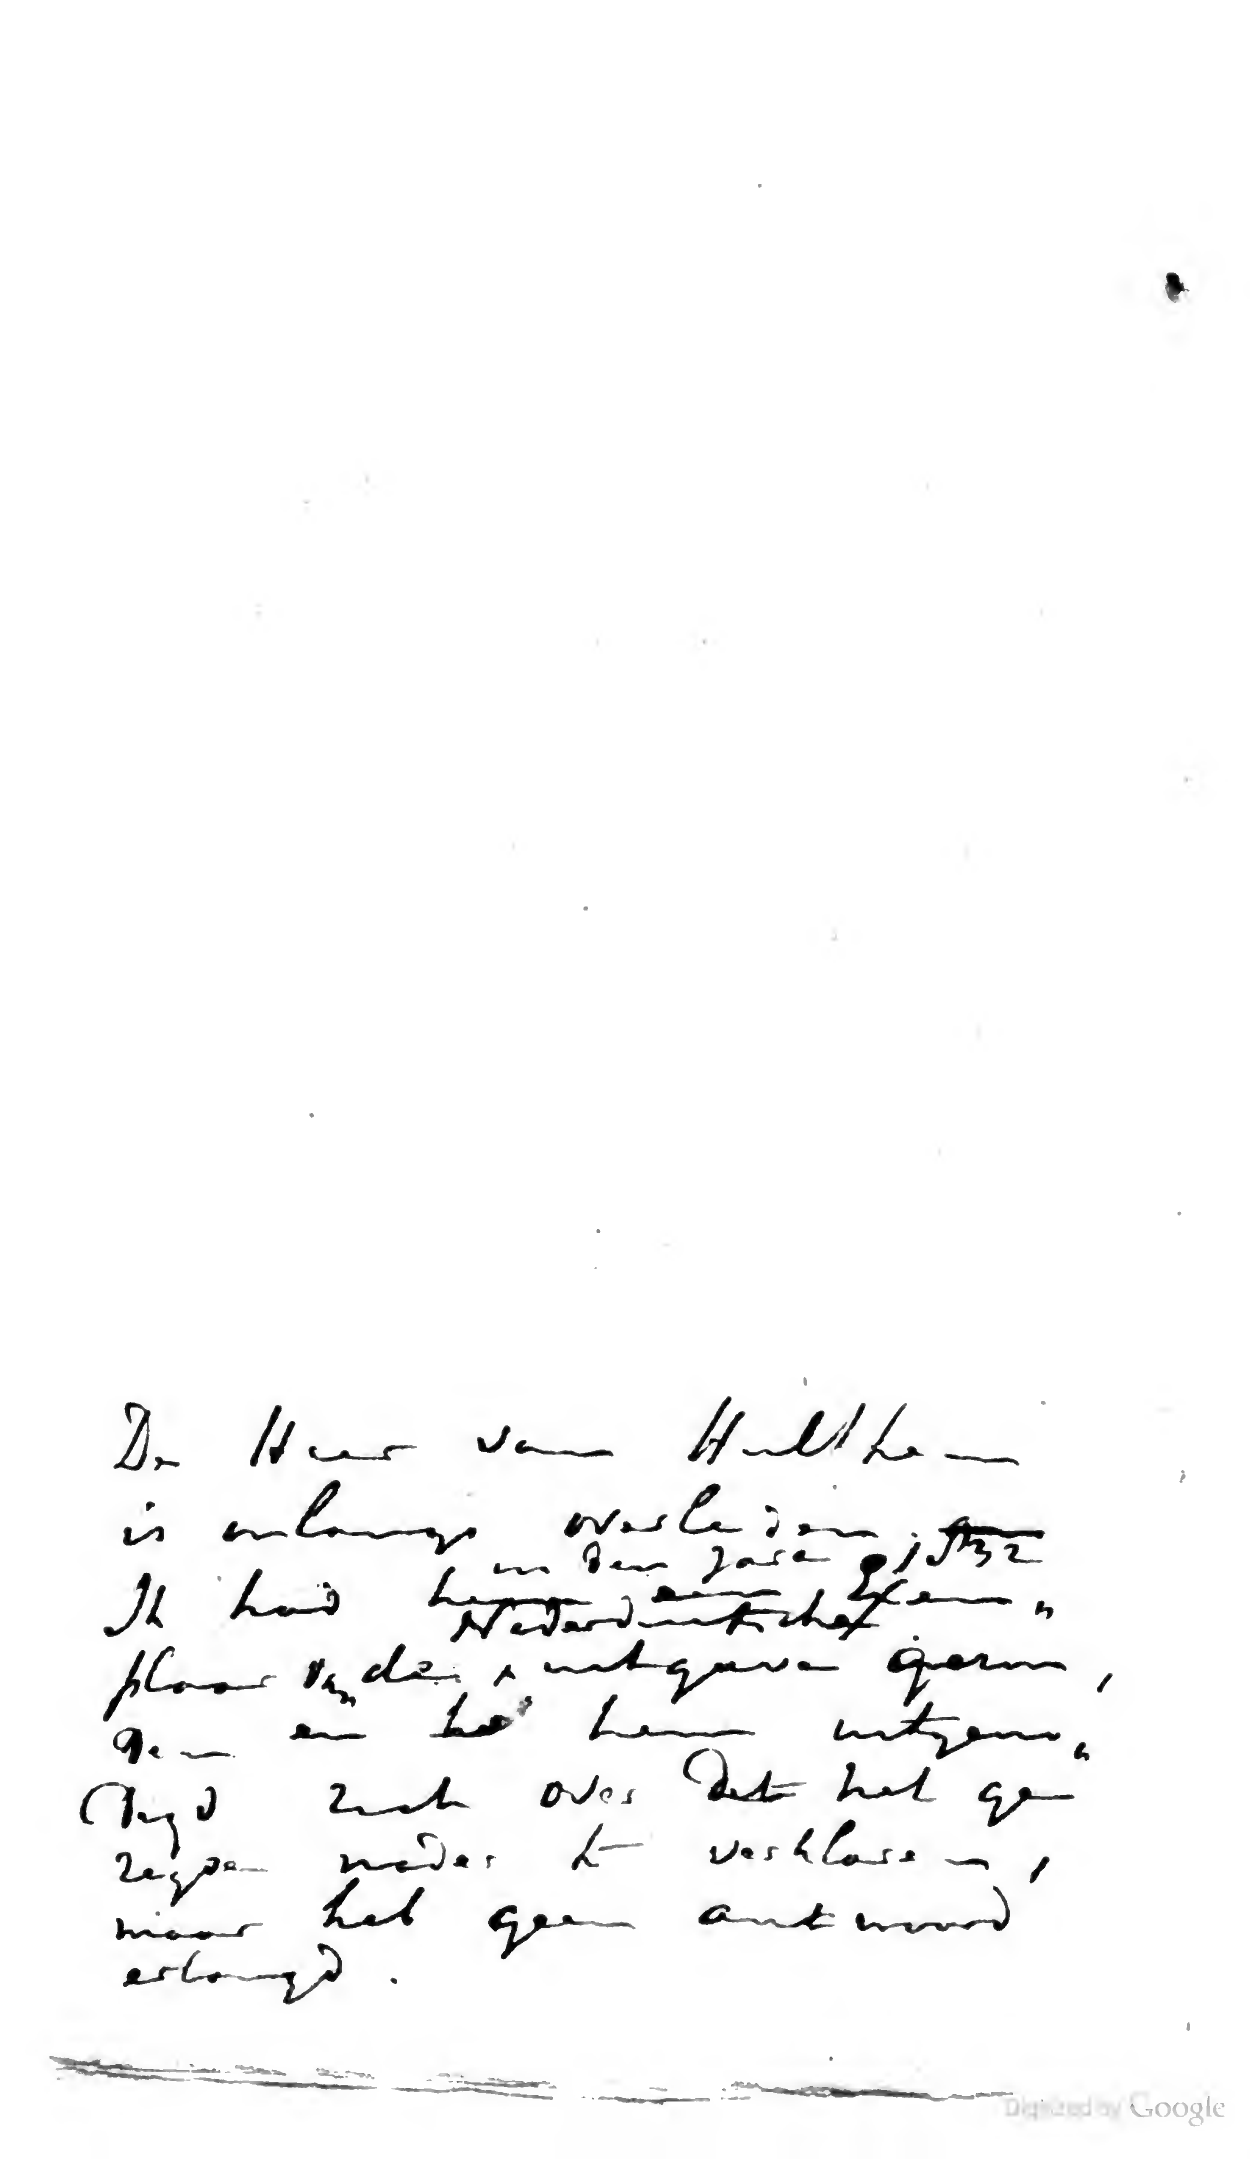 De Heer van Hulthem
is onlangs overleden,
in den jare 1832
Ik had hem een Exem„
Nederduitsche
plaar van de uitgave gezon,
den en heb hem uitgeno„
digd zich over het ge
zegden nader te verklaren,
maar heb geen antwoord
erlangd.
Digitized by Google